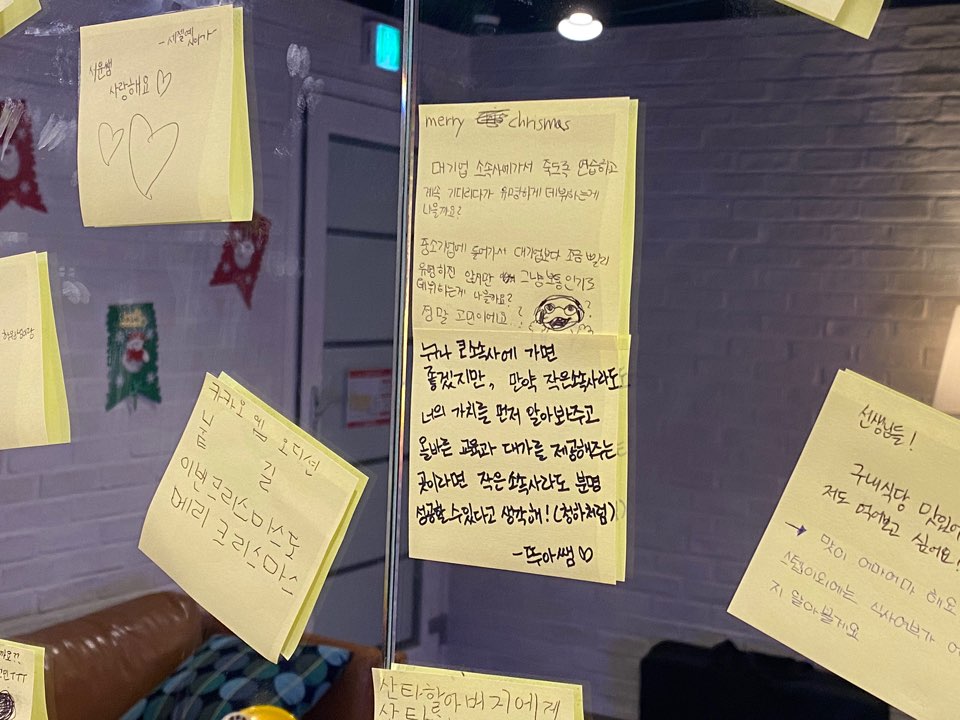 -세젤예
시아가
서운쌤
사랑해요
merry chrismas
대기업 소속사에가서 죽도록 연습하고
계속 기다리다가 유명하게 데뷔하는게
나을까요?
중소기업에 들어가서 대기업보다 조금 빨리
유명하진 않지만 그냥 보통 인기로
데뷔하는게 나을까요?
정말 고민이에요..? ?
누나 큰소속사에 가면
좋겠지만, 만약 작은소속사라도
너의 가치를 먼저 알아봐주고
올바른 교육과 대가를 제공해주는
곳이라면 작은 소속사라도 분명
성공할 수있다고 생각해! (청하처럼)
-뚜아쌤♡
카카오 엠 오디션
눝 길
이번크리스마스도
메리 크리스마스
선생님들!
구내식당 맛있
저도 먹어보고 싶어요!
맛이 어마어마 해요
스텝이외에는 식사여부가
지 알아볼게요
산타할아버지에게